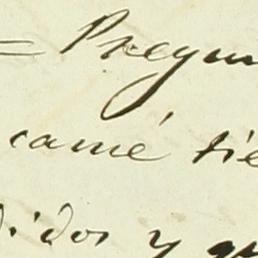 = Pregun
camé tie
didos y qu